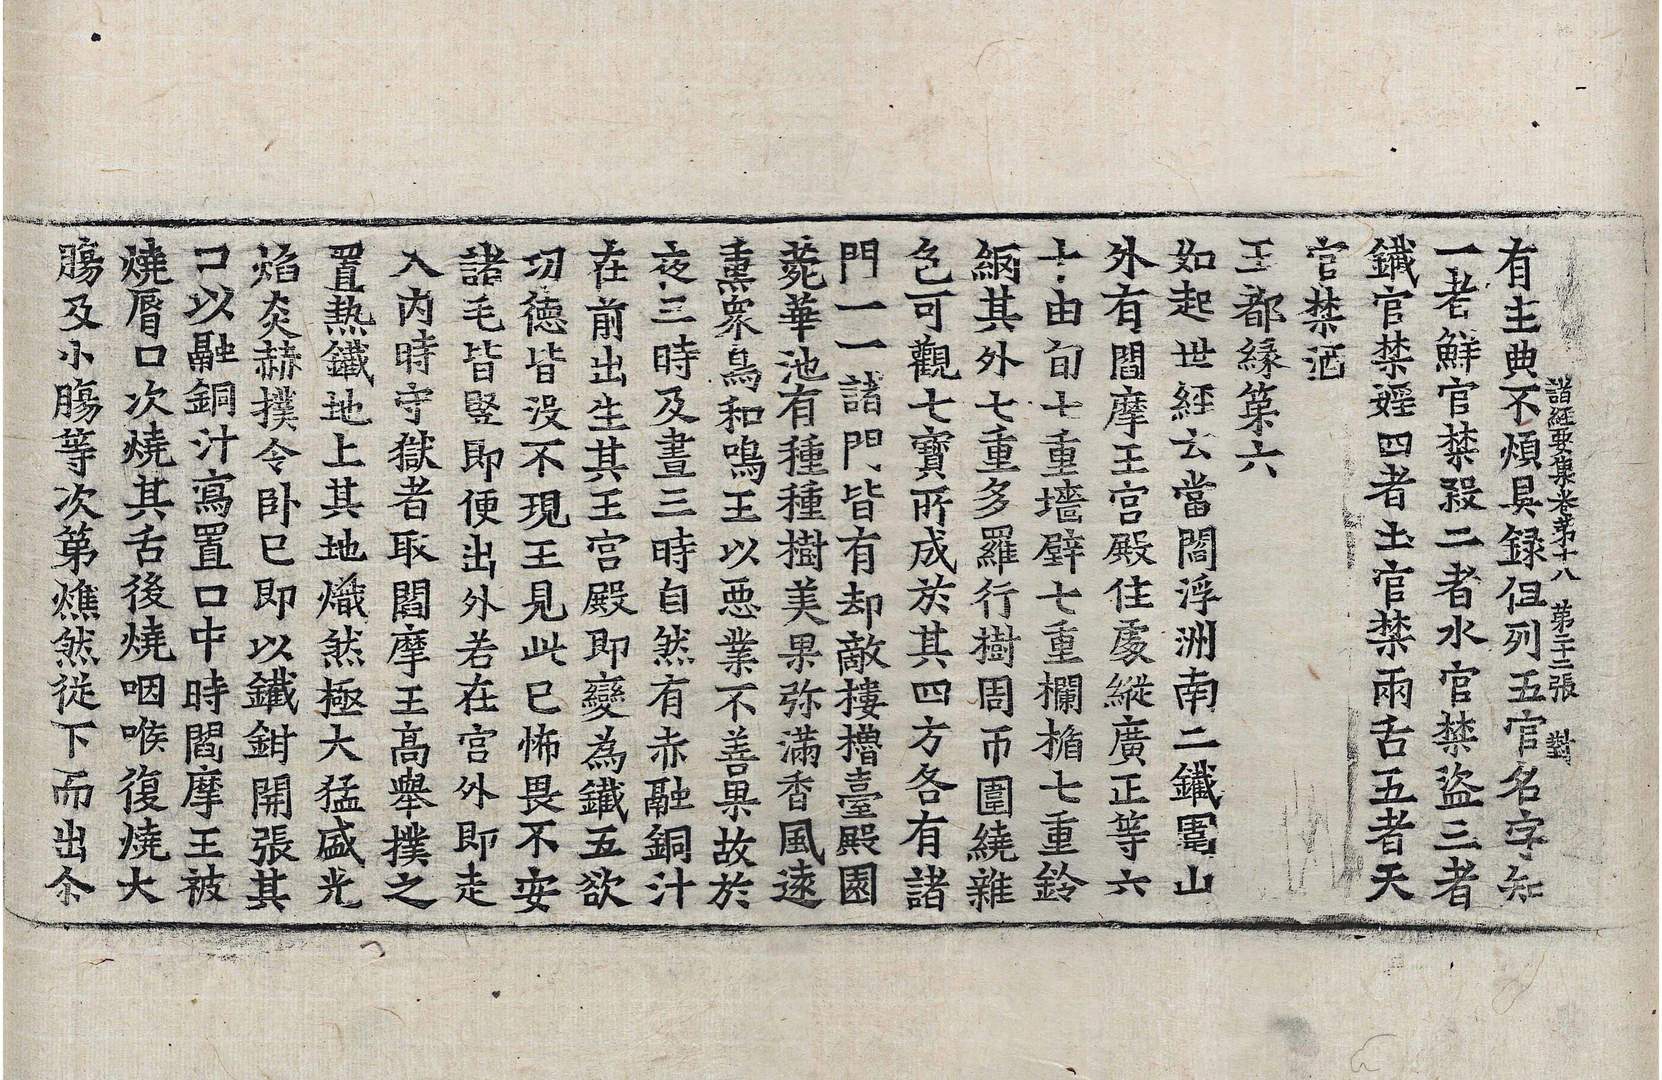 諸經要集卷第十八 第二十二張 對
有主典不煩具録但列五官名字知
一者鮮官禁殺二者水官禁盜三者
鐵官禁婬四者土官禁兩舌五者天
官禁酒
王都緣第六
如起世經云當閻浮洲南二鐵圍山
外有閻摩王宮殿住處縱廣正等六
十由旬七重墻壁七重欄楯七重鈴
網其外七重多羅行樹周帀圍繞雜
色可觀七寶所成於其四方各有諸
門一一諸門皆有却敵樓櫓臺殿園
苑華池有種種樹美果弥滿香風遠
熏衆鳥和鳴王以惡業不善果故於
夜三時及晝三時自然有赤融銅汁
在前出生其王宮殿即變為鐵五欲
功德皆没不現王見此已怖畏不安
諸毛皆竪即便出外若在宮外即走
入内時守獄者取閻摩王高舉撲之
置熱鐵地上其地熾然極大猛盛光
焰炎赫撲令卧已即以鐵鉗開張其
口以融銅汁寫置口中時閻摩王被
燒脣口次燒其舌後燒咽喉復燒大
腸及小腸等次第燋然從下而出尒